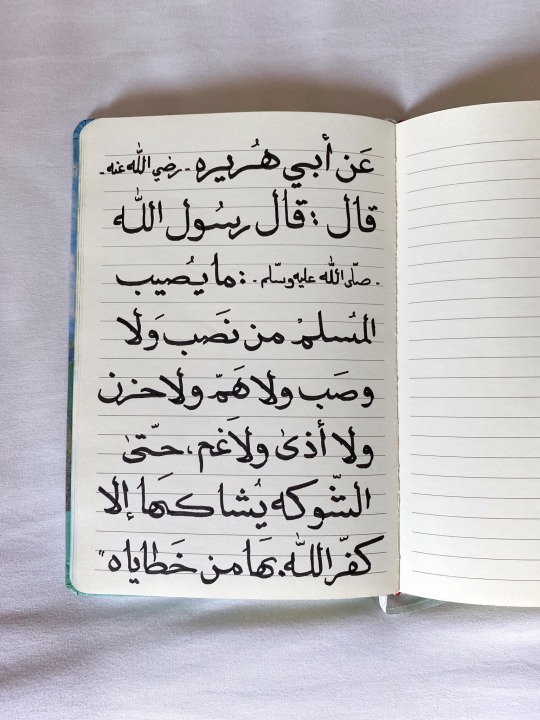 عَن أبي هُريره -رضي اللّٰه عنه-
قال : قال رسُول اللّٰه
-صلّى اللّٰه عليه وسلّم- : ما يُصيب
المُسلمْ من نَصَب وَلا
وصَب ولا هَمّ ولا حزن
ولا أذىٰ ولا غَم، حتّىٰ
الشّوكه يُشاكهَا إلا
كفّر اللّٰه بهَا من خَطاياه "